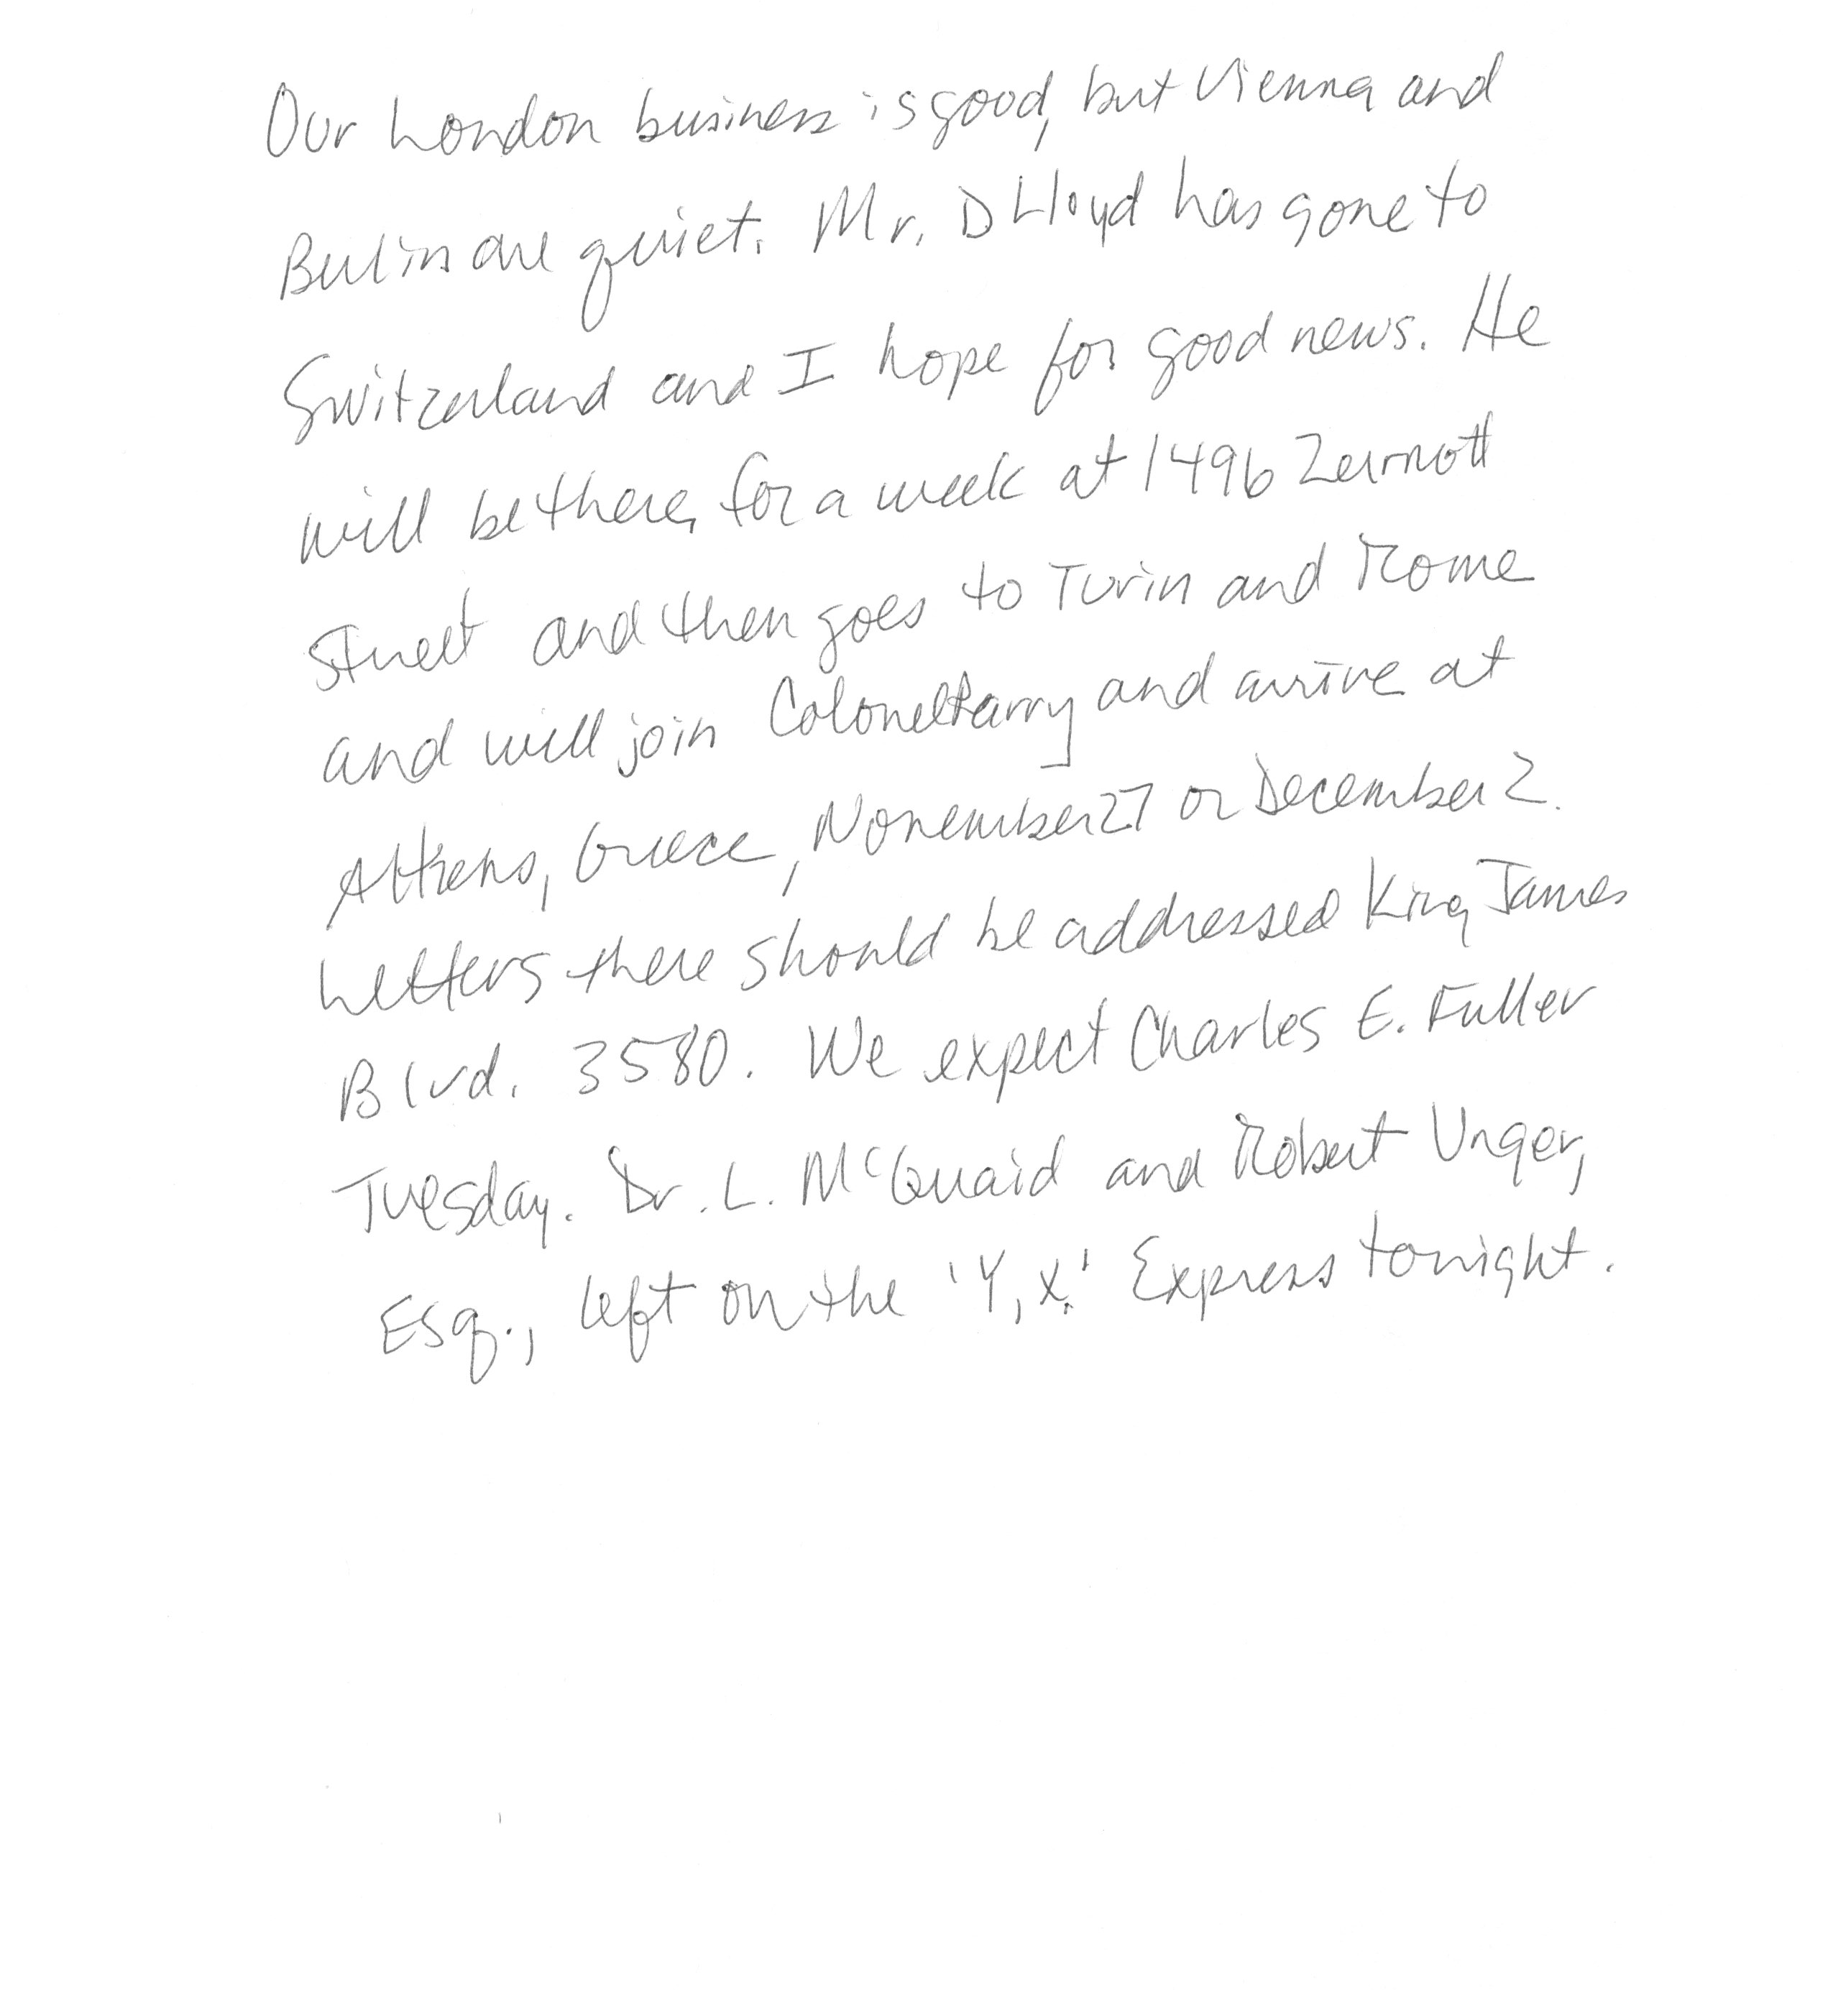 Our London business is good, but Vienna and
Berlin are quiet. Mr. D Lloyd has gone to
Switzerland and I hope for good news. He
will be there for a week at 1496 Zermott
Street and then goes to Turin and Rome
and will join Colonel Parry and arrive at
Athens, Greece, November 27 or December 2.
Letters there should be addressed King James
Blvd. 3580. We expect Charles E. Fuller
Tuesday. Dr. L. McQuaid and Robert Unger,
Esq., left on the 'Y, X.' Express tonight.